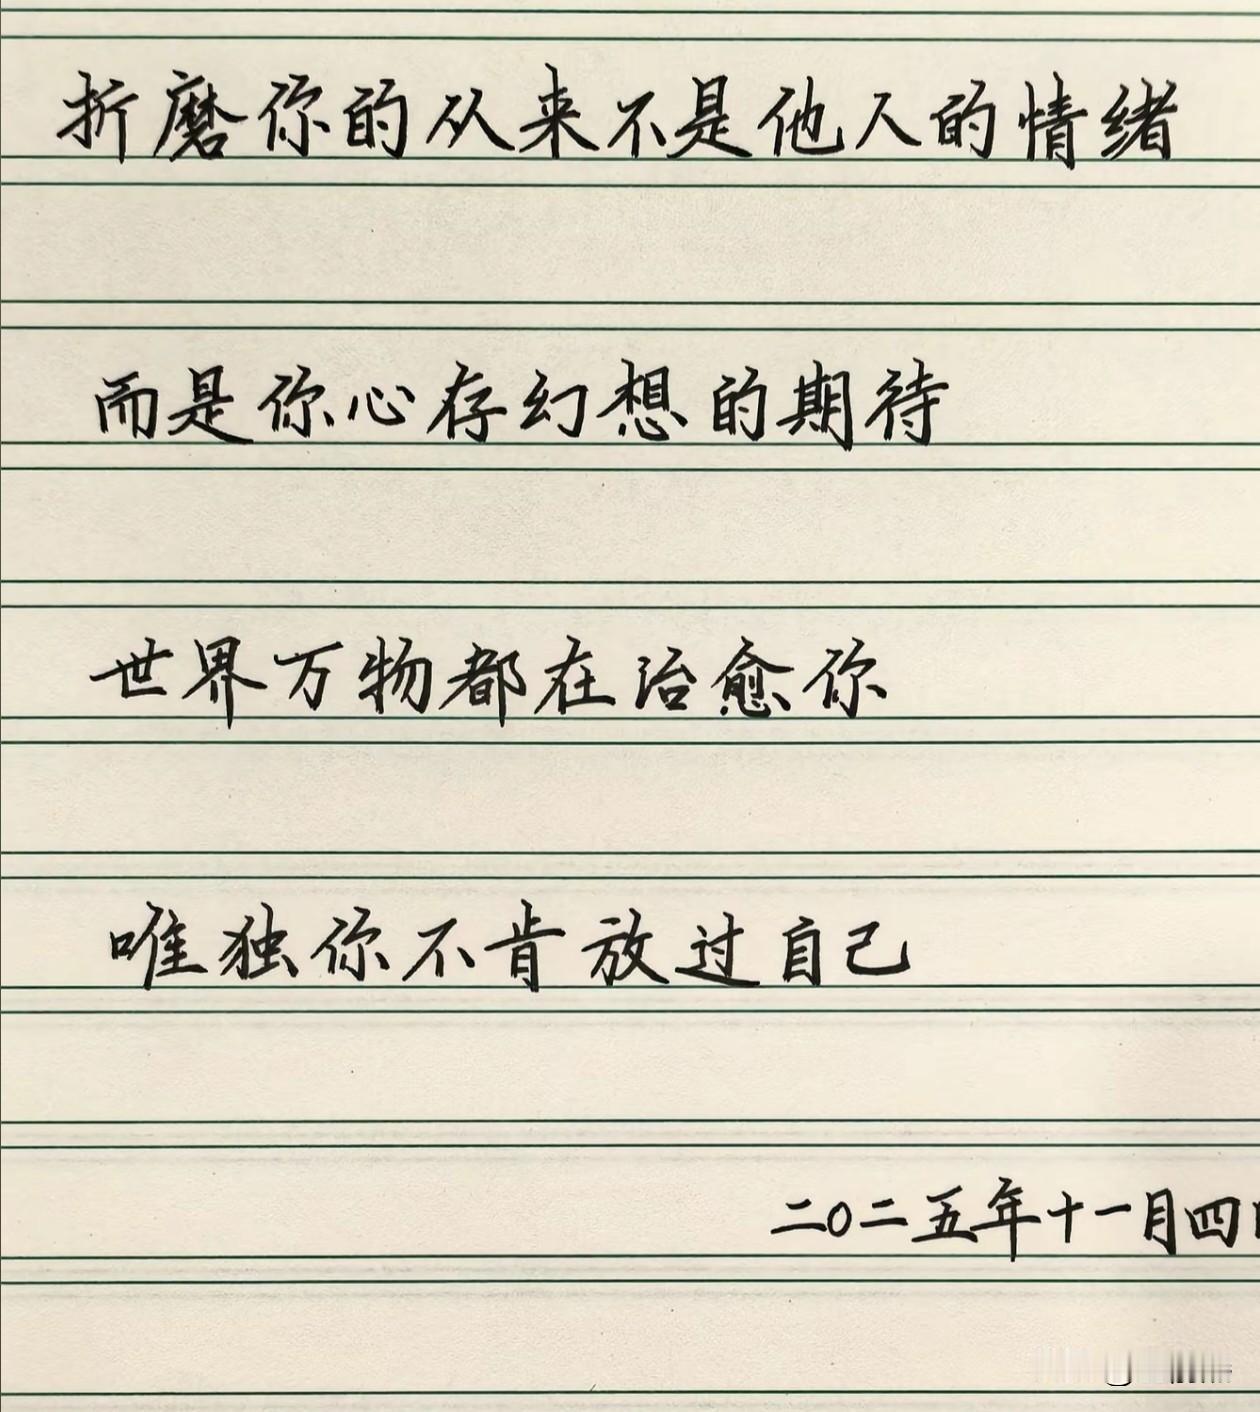 折磨你的从来不是他人的情绪
而是你心存幻想的期待
世界万物都在治愈你
唯独你不肯放过自己
二〇二五年十一月四